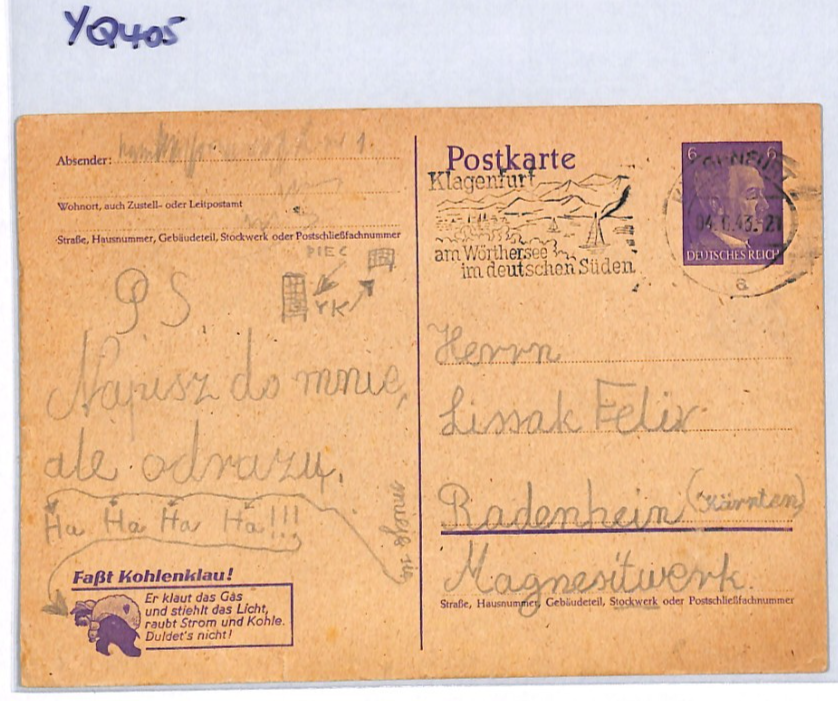 YQ405
Absender:
Wohnort, auch Zustell- oder Leitpostamt
Straße, Hausnummer, Gebäudeteil, Stockwerk oder Postschließfachnummer
PIEC
YK
PS.
Napisz do mnie,
ale odrazu.
Ha Ha Ha Ha!!!
Faßt Kohlenklau!
Er klaut das Gas
und stiehlt das Licht,
raubt Strom und Kohle.
Duldet's nicht!
Postkarte
Klagenfurt
am Wörthersee
im deutschen Süden
6 6
DEUTSCHES REICH
43.-21
a
Herrn
Lissak Felix
Radenhein (Kärnten)
Magnesitwerk.
Straße, Hausnummer, Gebäudeteil, Stockwerk oder Postschließfachnummer